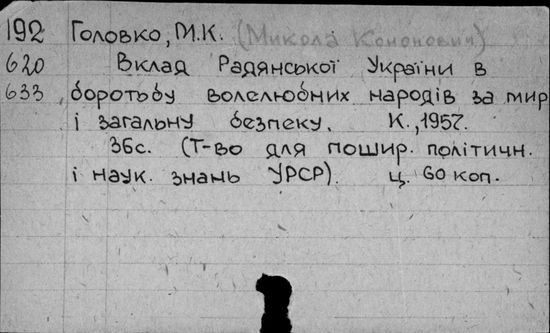 192 Головко, М.К. (Микола Кононович)
620 Вклад Радянської України в
633 боротьбу волелюбних народів за мир
і загальну безпеку. К., 1957.
36с. (Т-во для пошир. політичн.
і наук. знань УРСР). ц. 60 коп.